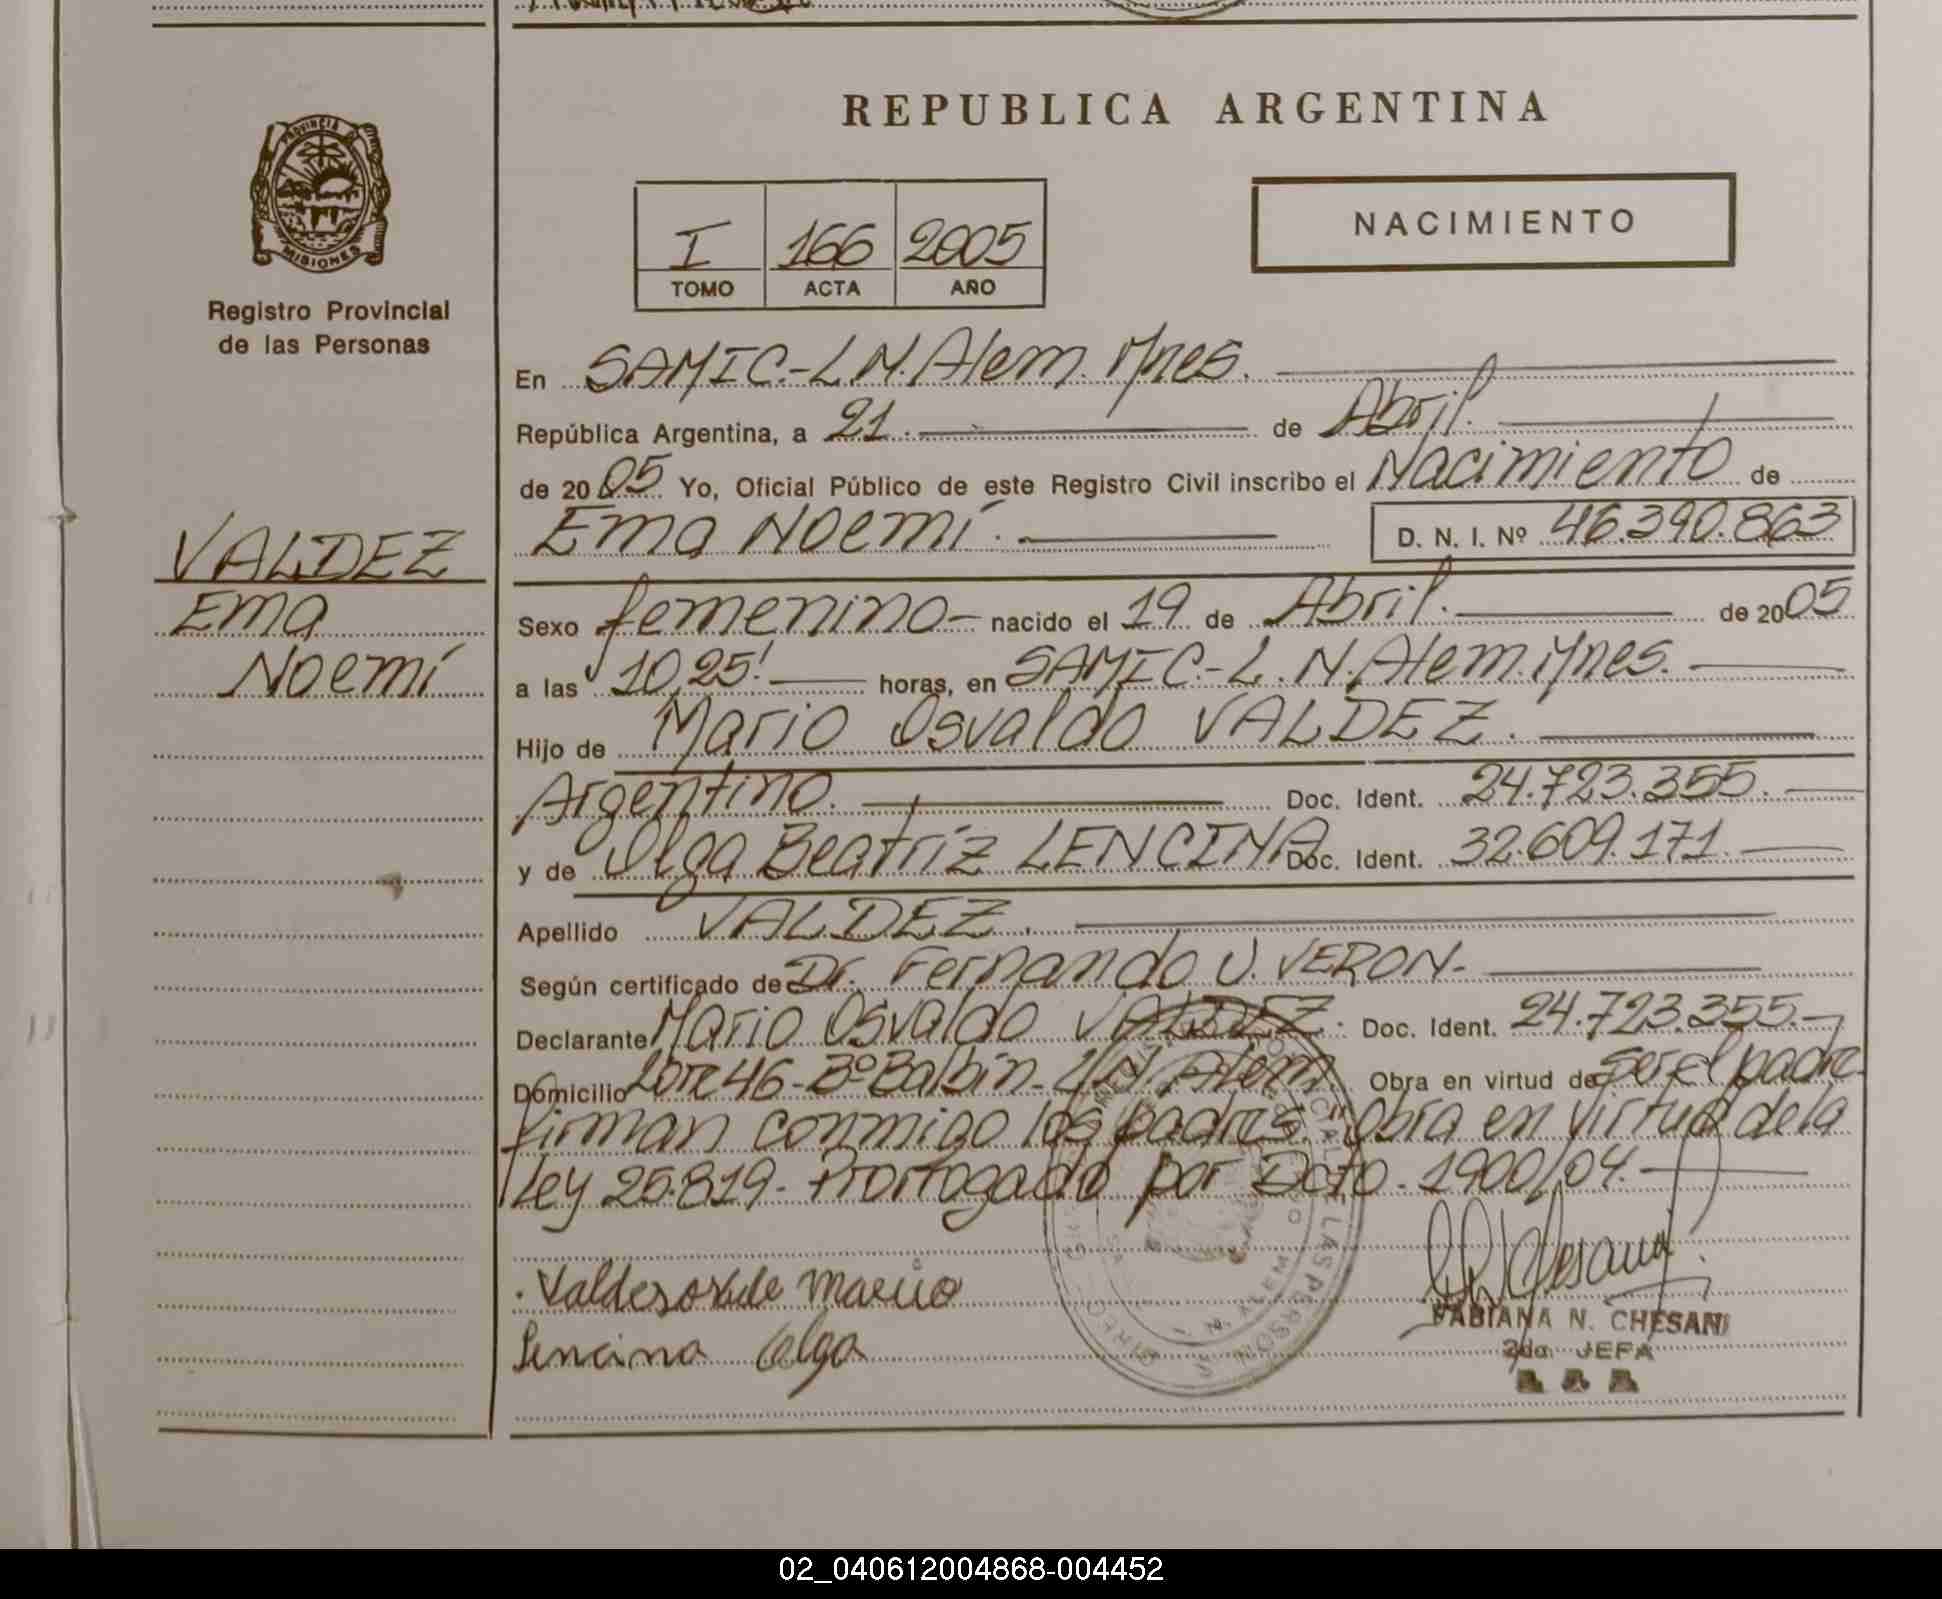 REPUBLICA ARGENTINA
PROVINCIA DE
MISIONES
Registro Provincial
de las Personas
I 166 2005
TOMO ACTA AÑO
NACIMIENTO
En SAMIC.-L.N.Alem. Mnes.
República Argentina, a 21. de Abril.
de 2005 Yo, Oficial Público de este Registro Civil inscribo el Nacimiento de
Ema Noemí. D. N. I. Nº 46.390.863
VALDEZ
Ema
Noemí
Sexo femenino- nacido el 19 de Abril. de 2005
a las 10,25! horas, en SAMIC.-L.N.Alem.Mnes.
Hijo de Mario Osvaldo VALDEZ.
Argentino. Doc. Ident. 24.723.355.
y de Olga Beatríz LENCINA Doc. Ident. 32.609.171.
Apellido VALDEZ.
Según certificado de Dr. Fernando U. VERON-
Declarante Mario Osvaldo VALDEZ. Doc. Ident. 24.723.355.-
Domicilio Lote 46-Bº Balbín-L.N.Alem. Obra en virtud de ser el padre
firman conmigo los padres. Obra en virtud de la
Ley 25.819- Prorrogado por Dcto. 1900/04.
Mario
Lencina Olga
FABIANA N. CHESANI
2da. JEFA
02_040612004868-004452